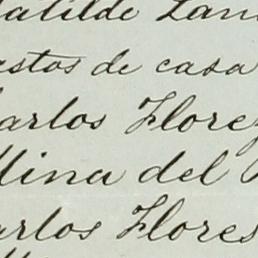 Matilde Lan
astos de casa
Carlos Florez
Mina del
Carlos Flores